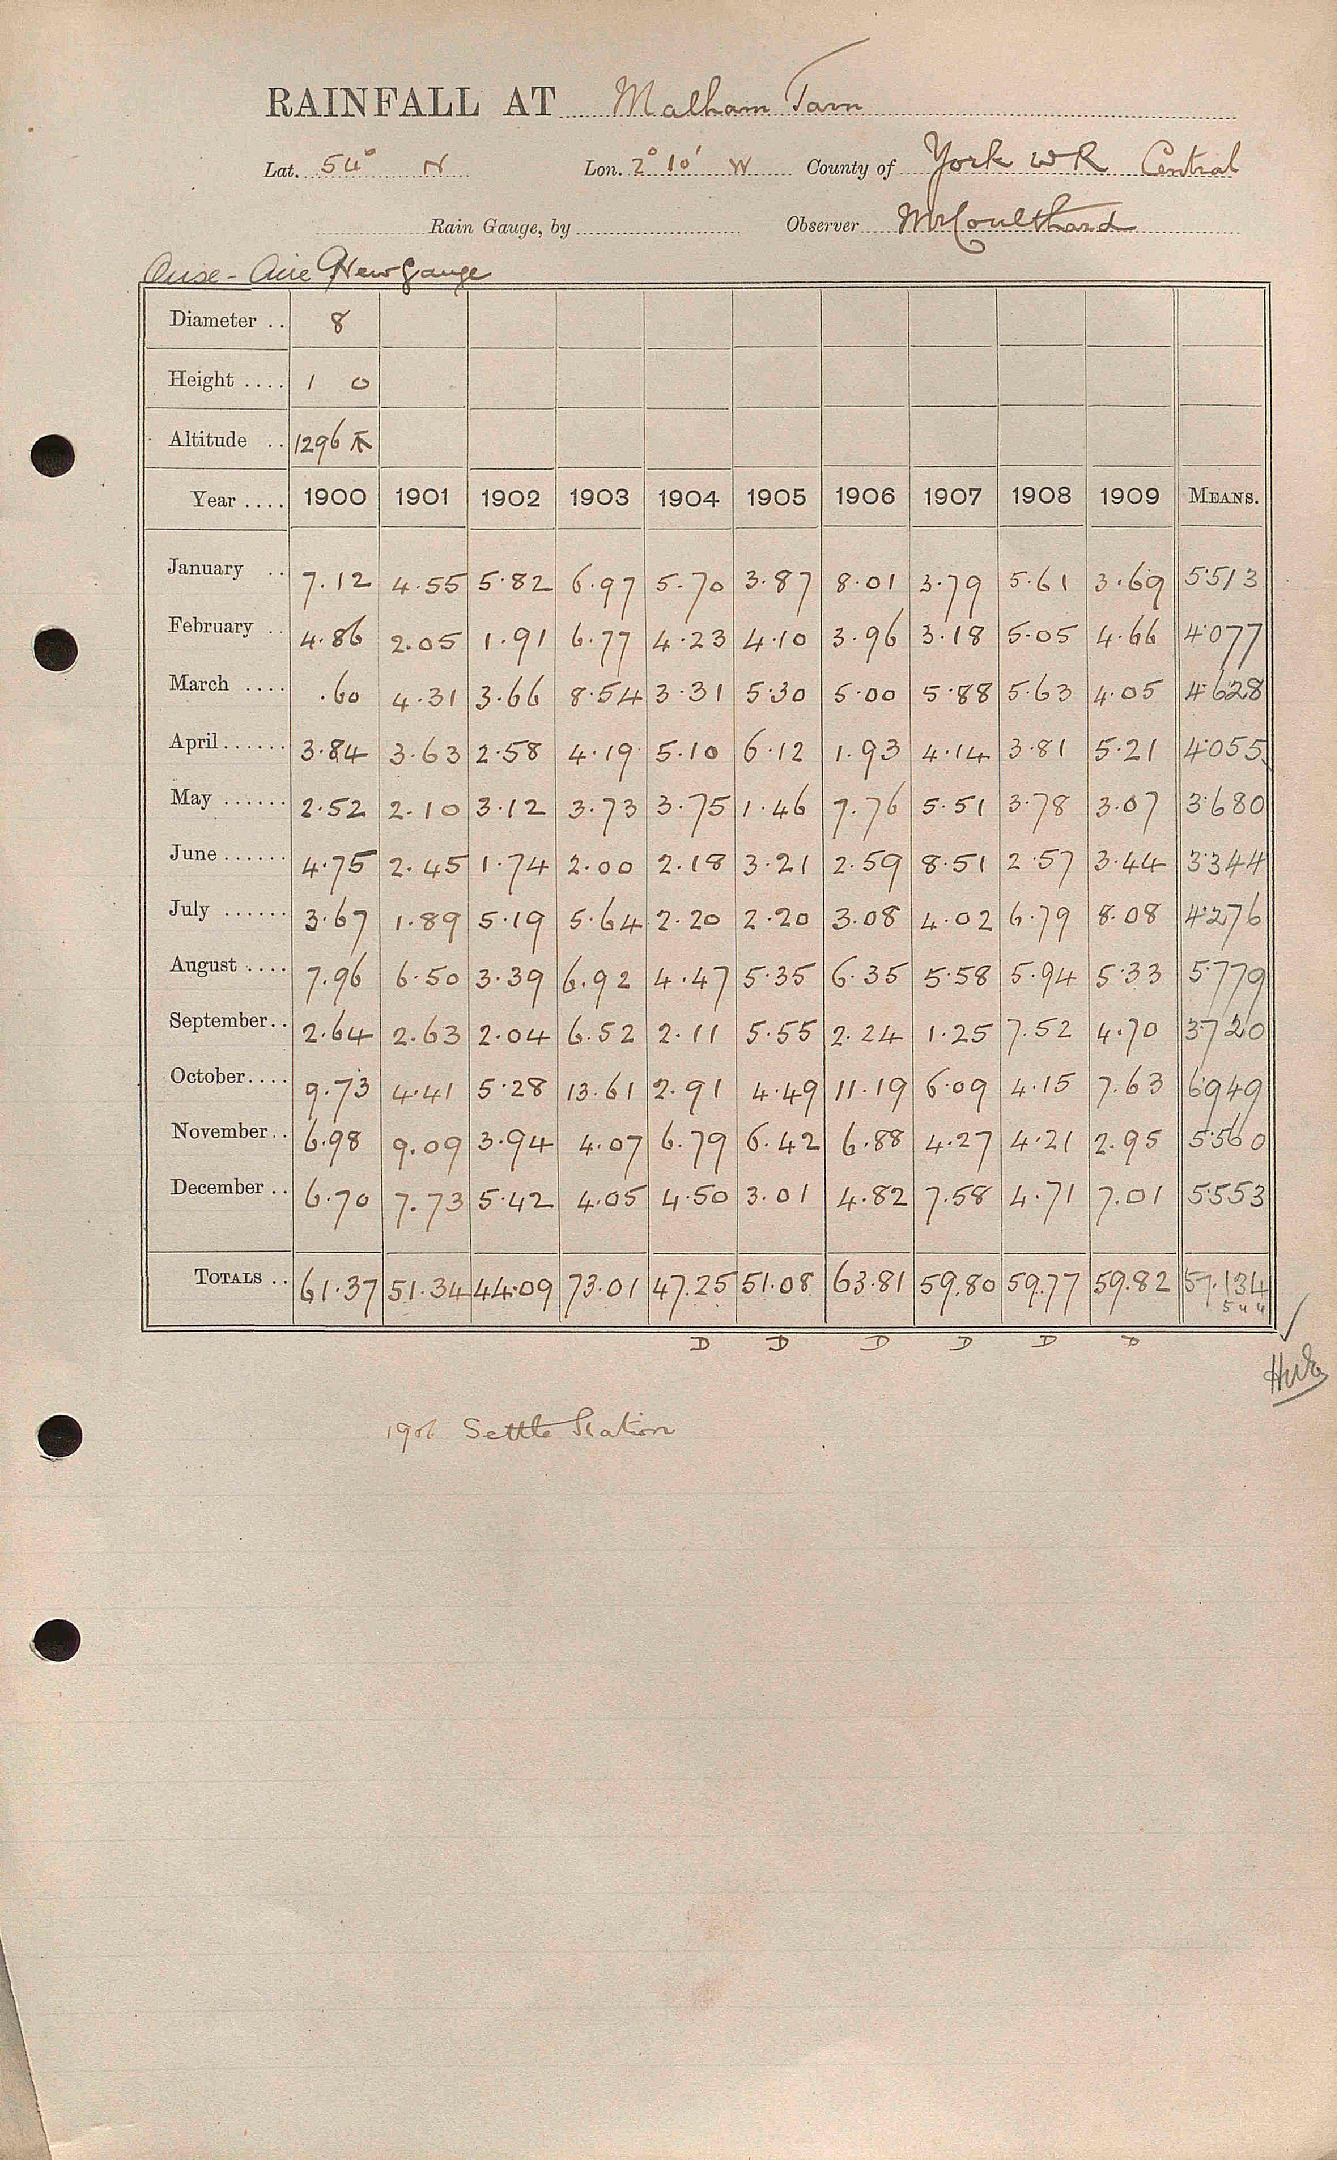 RAINFALL AT Malham Tarn
Lat. 54° N Lon. 2° 10' W County of York W R Central
Rain Gauge, by Observer Mr Coulthard
Ouse - Aire New Gauge
Diameter .. 8
Height .... 1 0
Altitude .. 1296
Year .... 1900 1901 1902 1903 1904 1905 1906 1907 1908 1909 MEANS.
January .. 7.12 4.55 5.82 6.97 5.70 3.87 8.01 3.79 5.61 3.69 5.513
February .. 4.86 2.05 1.91 6.77 4.23 4.10 3.96 3.18 5.05 4.66 4.077
March .... .60 4.31 3.66 8.54 3.31 5.30 5.00 5.88 5.63 4.05 4.628
April ...... 3.84 3.63 2.58 4.19 5.10 6.12 1.93 4.14 3.81 5.21 4.055
May ...... 2.52 2.10 3.12 3.73 3.75 1.46 7.76 5.51 3.78 3.07 3.680
June ...... 4.75 2.45 1.74 2.00 2.18 3.21 2.59 8.51 2.57 3.44 3.344
July ...... 3.67 1.89 5.19 5.64 2.20 2.20 3.08 4.02 6.79 8.08 4.276
August .... 7.96 6.50 3.39 6.92 4.47 5.35 6.35 5.58 5.94 5.33 5.779
September .. 2.64 2.63 2.04 6.52 2.11 5.55 2.24 1.25 7.52 4.70 3.720
October .... 9.73 4.41 5.28 13.61 2.91 4.49 11.19 6.09 4.15 7.63 6.949
November .. 6.98 9.09 3.94 4.07 6.79 6.42 6.88 4.27 4.21 2.95 5.560
December .. 6.70 7.73 5.42 4.05 4.50 3.01 4.82 7.58 4.71 7.01 5.553
TOTALS .. 61.37 51.34 44.09 73.01 47.25 51.08 63.81 59.80 59.77 59.82 57.134
D D D D D D
1906 Settle Station